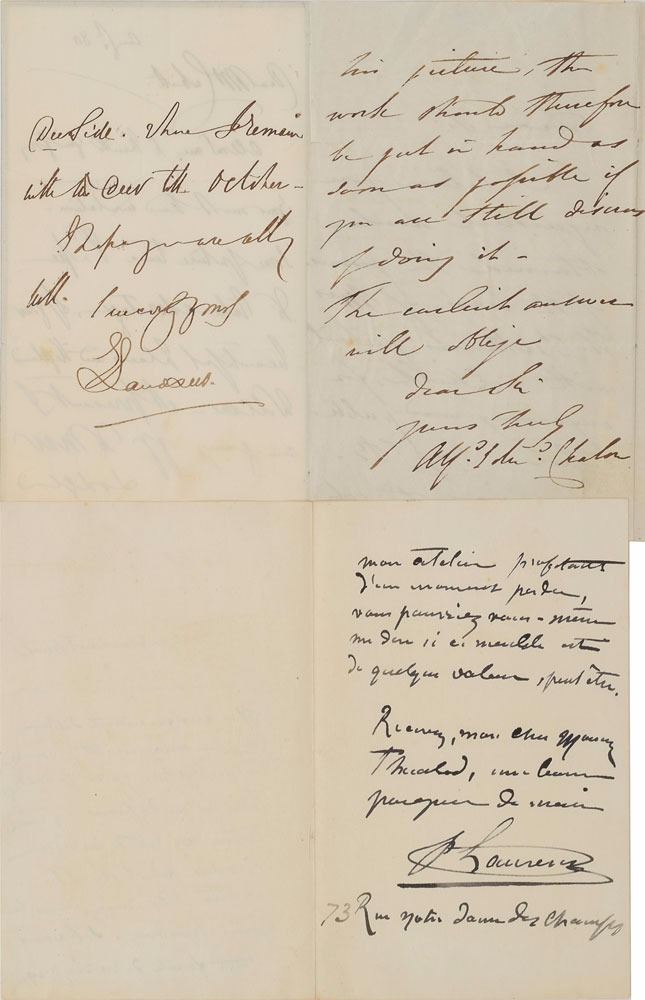 DeeSide. where I remain
with the Deer till October -
I hope you are all
well.
Sincerely yours
his picture, the
work should therefore
be put in hand as
soon as possible if
you are still desirous
of doing it -
The earliest answer
will oblige
dear Sir
yours truly
Alf.d Edw.d Chalon
mon atelier profitant
d'un moment perdu,
vous pourriez vous-même
me dire si ce meuble est
de quelque valeur, peut être.
Recevez, mon cher Monsieur
une bonne
poignée de main
Laurens
73 Rue Notre Dame des Champs